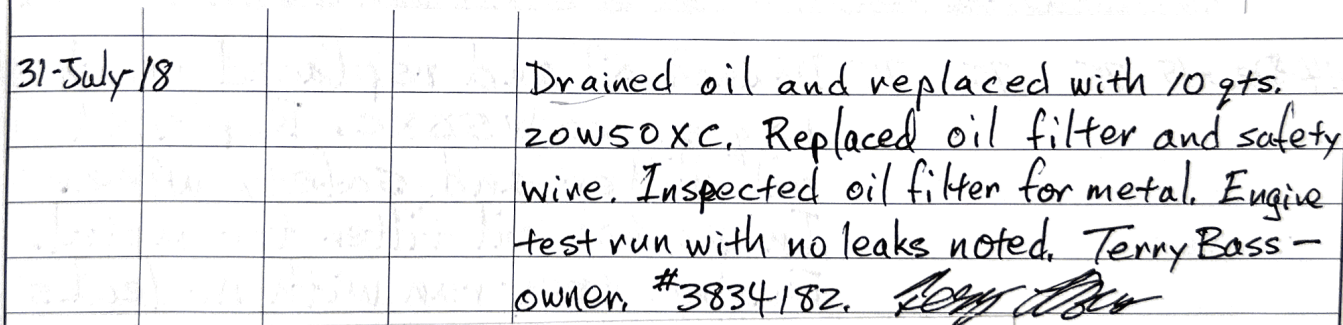 31-July-18 Drained oil and replaced with 10 qts.
20W50XC. Replaced oil filter and safety
wire. Inspected oil filter for metal. Engine
test run with no leaks noted. Terry Bass -
owner. #3834182.